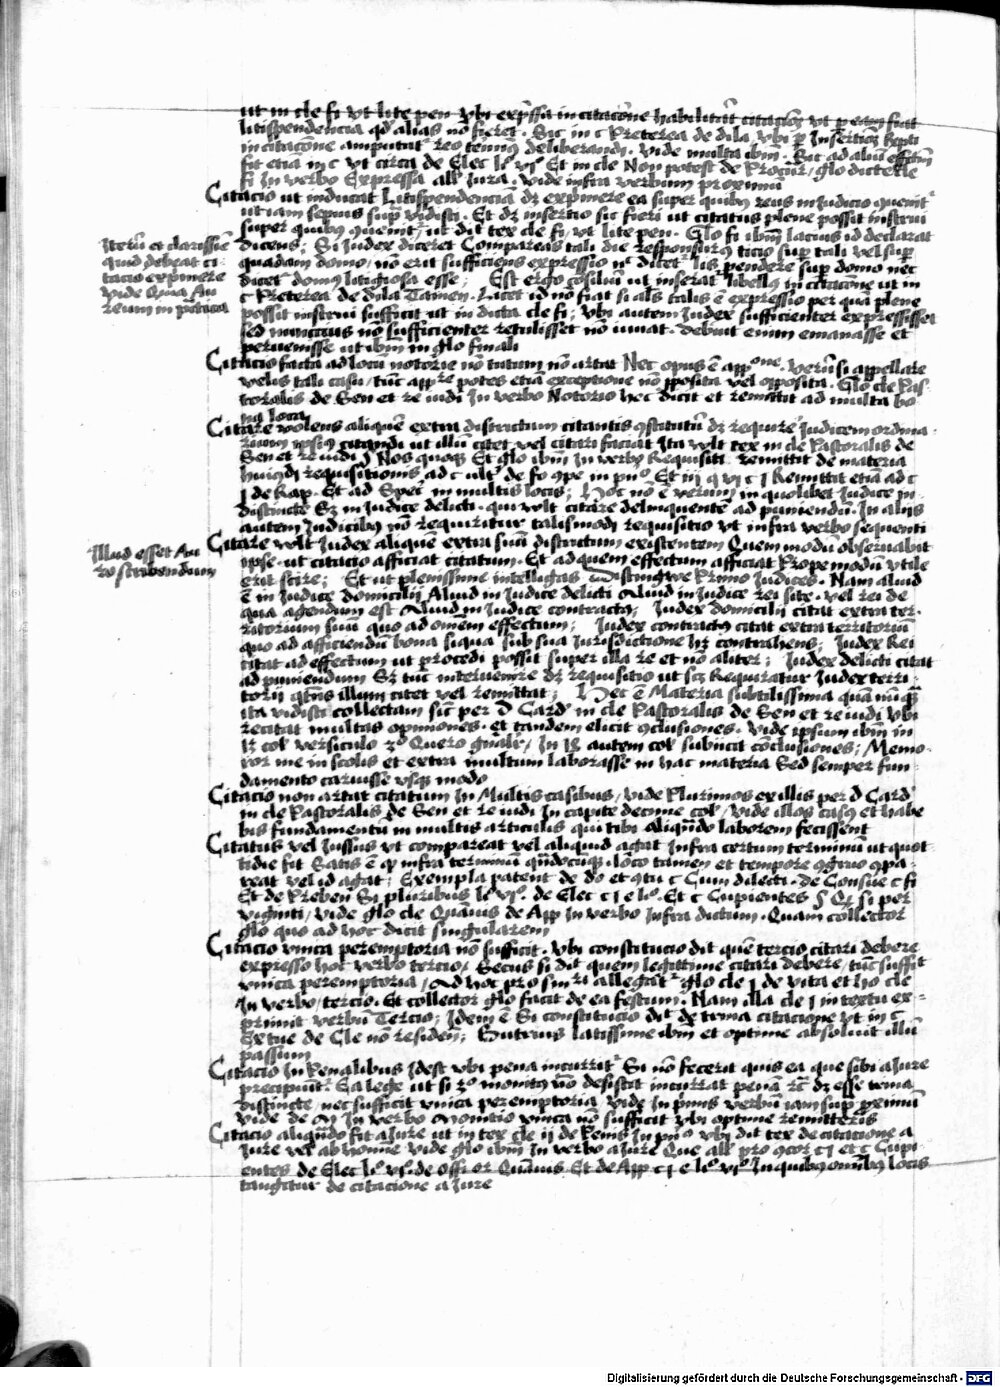 ut in cle fi vt lite pen vbi exp̄ssa in citacōne habilitat̄ citacioēs vt p eam fiat
litispendencia qd̄ alias nō fieret . Sic in c Preterea de dila vbi
in citacōne amputat̄ reo terminꝰ deliberandi . Vide multa ibm̄ . Sic ad aliū effectū
fit etiā in c vt circa de Elec li° vi° Et in cle Non potest de Procur̄ / glo dicte cle
fi In verbo Expressa all̄ Iura . Vide infra verbum proximū
Citacio ut inducat Litispendenciā dꝫ exp̄mere ea super quibꝰ reus in Iudicio ꝯuenit̄
ut iam sepius sup̄ vidisti . Et dꝫ insertio sic fieri ut citatus plene possit instrui
super quibus ꝯuenit̄ / ut dit tex cle fi / vt lite pen . Glo fi ibm̄ lacius id declarat
dicens ; Si Iudex diceret Compareas tali die responsurꝰ ticio sup̄ tali vel sup̄
quadam domo / nō erit sufficiens expressio n° dicet̄ lis pendere sup̄ domo nec
dicet̄ domꝰ litigiosa esse ; Est ergo cōsiliū ut inserat̄ libellꝰ in citacione ut in
c Preterea de dila Tamen . Licet id nō fiat si als talis ē expressio per quā plene
possit instrui sufficit ut in dicta cle fi ; vbi autem Iudex sufficienter expressisset
sed nunccius nō sufficienter retulisset nō iuuat . Debuit enim emanasse et
peruenisse ut ibm̄ in glo finali
Iterū et clarissiē
quid debeat ci-
tacio exp̄mere
vide
Citacio facta ad locū notorie nō tutum nō artat Nec opus ē app°ne . Verū si appellare
velis tali casu / tūc app̄re potes etiā exceptione nō pposita vel opposita . Glo cle Pas-
toralis de Sen et re iudi In verbo Notorio hec dicit et remittit ad multa bo
na loca
Citare volens aliquē extra districtum citantis ꝯstitutū dꝫ requir̄e Iudicem ordina-
rium ipsiꝰ citandi ut illū citet vel citari faciat Ita vult tex in cle Pastoralis de
Sen et re iudi § Nos quoqꝫ Et glo ibm̄ In verbo Requisiti remittit de materia
huiꝰmodi requisitionis ad c ult° de fo ꝯpe in pn° . Et iij q vj c j Remittat etiā ad c
j de Rap . Et ad Spec̄ in multis locis ; Hoc nō ē verum in quolibet Iudice in-
distincte Sꝫ in Iudice delicti . qui vult citare delinquente ad puniendū . In alijs
autem Iudicibꝰ nō requiritur talismodi requisitio vt infra verbo sequenti
Citare vult Iudex aliquē extra suū districtum existentem Quem modū obseruabit
ipse . ut citacio afficiat citatum . Et ad quem effectum afficiat Prope modū vtile
erit scire ; Et ut plenissime intelligas Distingwe Primo Iudices . Nam aliud
ē in Iudice domicilij Aliud in Iudice delicti Aliud in Iudice rei site . vel rei de
qua agendum est Aliud in Iudice contractꝰ ; Iudex domicilij citat extra ter-
ritorium suū quo ad omēm effectum ; Iudex contractꝰ citat extra territoriū
quo ad afficiendū bona siqua sub sua Iurisdictione hꝫ contrahens ; Iudex Rei
citat ad effectum ut p̄cedi possit super illa re et nō aliter ; Iudex delicti citat
ad puniendum Sꝫ tūc interuenire dꝫ requisitio ut scꝫ Requiratur Iudex terri-
torij qt̄nꝰ illum citet vel remittat ; Hec ē Materia subtilissima quā nūqꝫ
ita vidisti collectam sic̄ per D Card̄ in cle Pastoralis de Sen et re iudi Vbi
recitat multas opiniones . et tandem elicit ꝯclusiones . Vide ipsum ibm̄ in
col̄ versiculo 2° Quero gn̄alr̄ / In autem col̄ subicit cōclusiones ; Memo-
ror me in scolis et extra multum laborasse in hac materia Sed semper fun-
damento caruisse vsqꝫ modo
Illud esset Au
ro scribendum
Citacio non artat citatum In Multis casibus / Vide Plurimos ex illis per D Card̄
in cle Pastoralis de Sen et re iudi In capite decime col̄ / Vide illos casꝰ et habe
bis fundamentū in multis articulis qui tibi aliqn̄do laborem fecissent
Citatus vel Iussus vt compareat vel aliquid agat Infra certum terminū ut quot-
tidie fit Satis ē qꝫ infra terminū qn̄docūqꝫ . loco tamen et tempore ꝯgruo ꝯpa-
reat vel id agat ; Exempla patent de do et ꝯtu c Cum dilecti . de Consue c fi
Et de Preben̄ Si pluribus li° vi° . de Elec c j e li° . Et c Cupientes § Qꝫ si per
viginti / Vide glo cle Quāuis de App In verbo Infra dictum . Quam collector
glo quo ad hoc dicit singularem
Citacio vnica peremptoria nō sufficit . Vbi constitucio dit quē tercio citari debere
expresso hoc verbo tercio / Secus si dit quem legittime citari debere / tūc suffit
vnica peremptoria / Ad hoc pro sin̄ri allegat̄ glo cle j de vita et ho cle
In verbo / tercio . Et collector glo facit de ea festum . Nam illa cle j in textu ex-
primit verbū Tercio ; Idem ē Si constitucio dit de trina citacione vt in c
Extue de Cle nō residen̄ ; Butrius latissime ibm̄ et optime absoluit illū
passum
Citacio In Penalibus Idest vbi pena incurrit̄ Si nō fecerit quis ea que sibi a Iure
precipiūt̄ . Ea lege ut si 2° monitꝰ nō desistit incurrat penā rc̄ dꝫ esse trina
distincte / nec sufficit vnica peremptoria Vide In pnīs verbū iam sup̄ proximū
Vide de M In verbo Monitio vnica nō sufficit vbi optime remitteris
Citacio aliqn̄do fit a Iure ut in tex cle ij de Penis In pn° vbi dit tex de citacione a
Iure vel ab homine Vide glo ibm̄ In verbo a Iure Que all̄ pro ꝯcor c j et c Cupi-
entes de Elec li° vi° de offi or Quāuis . Et de App c j e li° vi° In quibus omībꝰ locis
tangitur de citacione a Iure
Digitalisierung gefördert durch die Deutsche Forschungsgemeinschaft - DFG